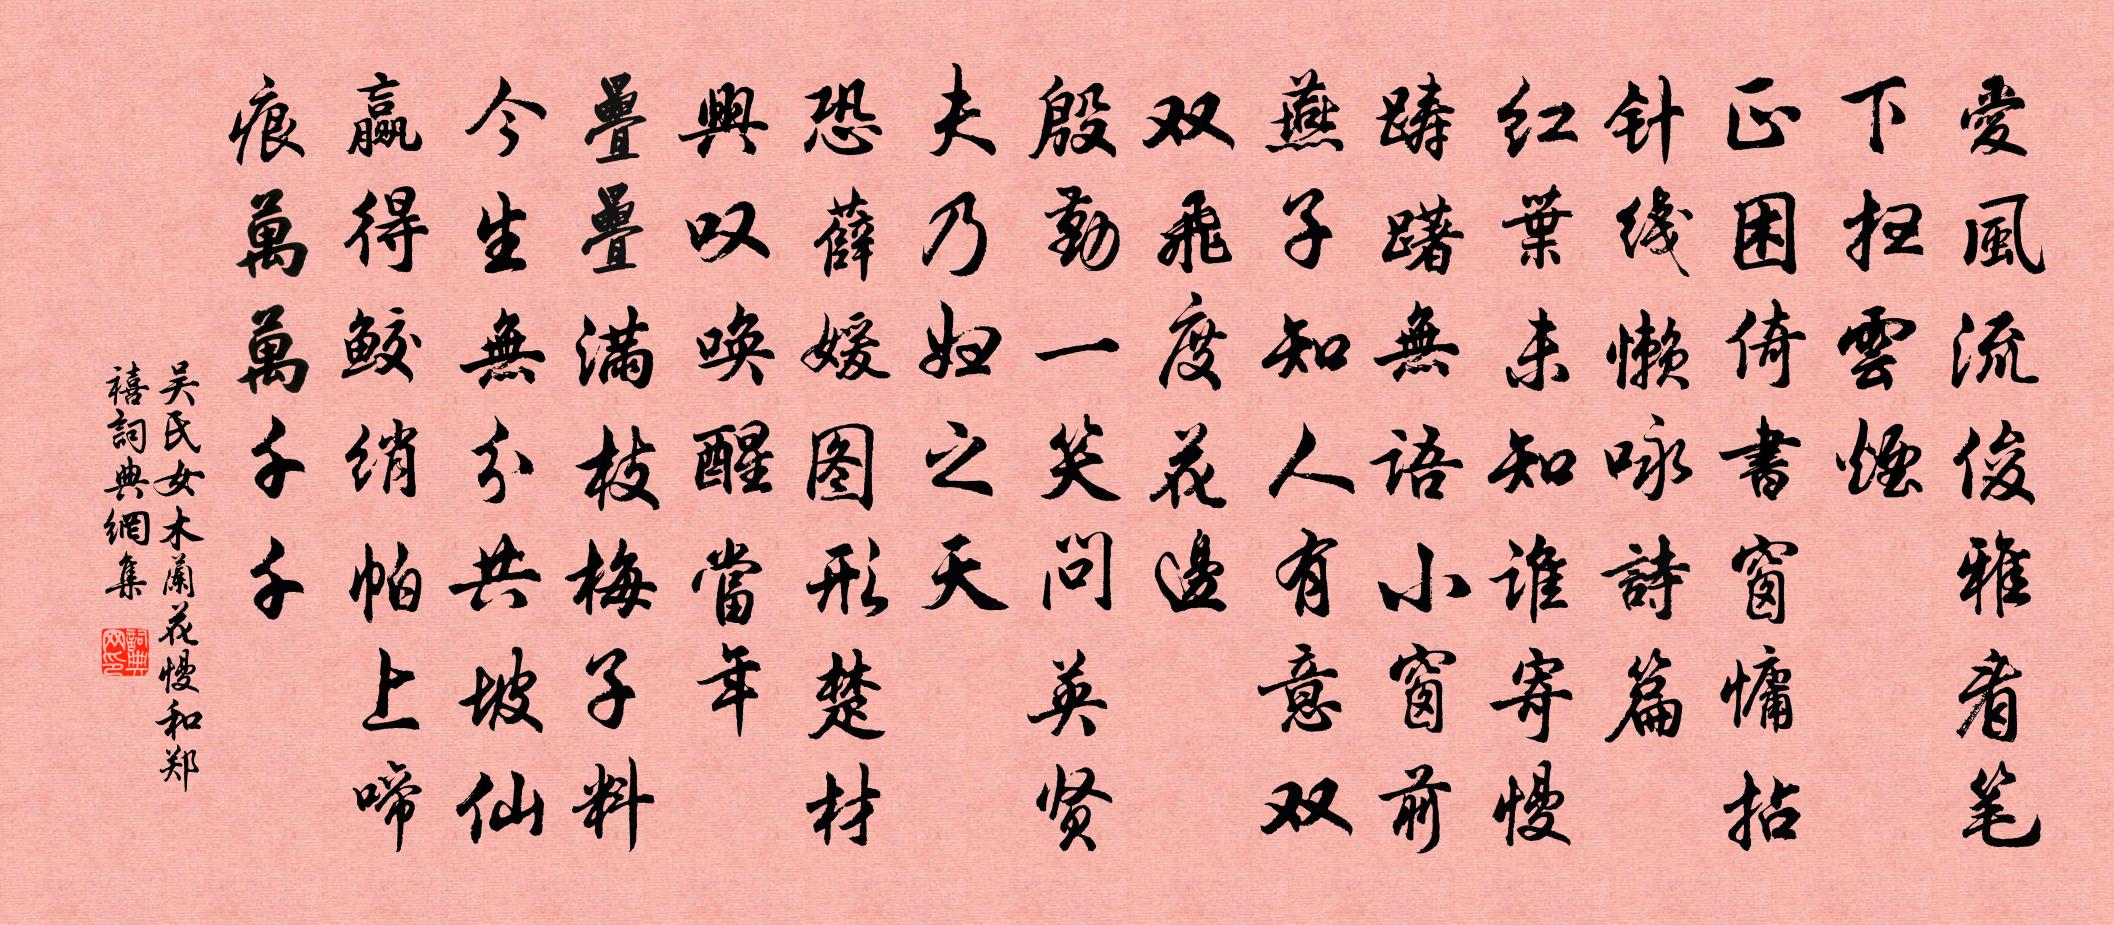 愛風流俊雅看笔
下扫雲煙
正困倚書窗慵拈
针线懒咏詩篇
红葉未知谁寄慢
踌躇無语小窗前
燕子知人有意双
双飛度花邊
殷勤一笑问英贤
夫乃妇之天
恐薛媛图形楚材
興叹唤醒當年
疊疊满枝梅子料
今生無分共坡仙
赢得鲛绡帕上啼
痕萬萬千千
吴氏女木蘭花慢和郑
禧詞典網集
詞典
网印